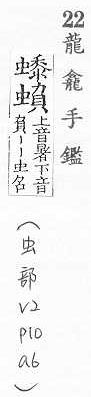 22 龍龕手鑑
蝜 上音暑下音
負丨丨虫名
(虫部 V2 p10 a6)